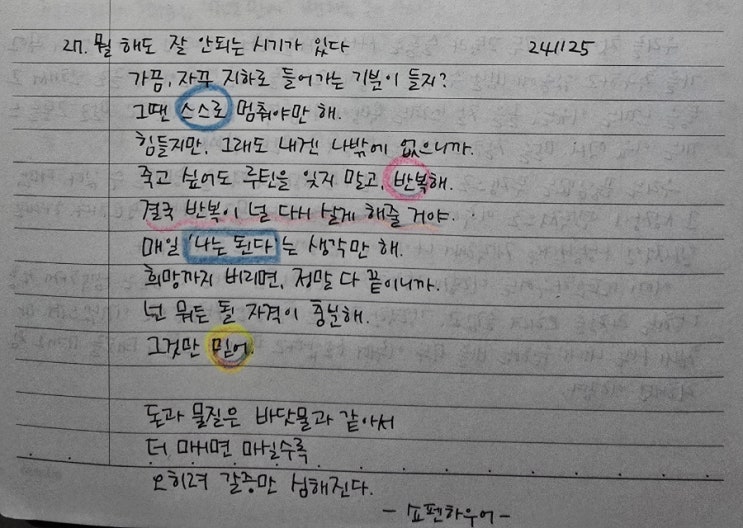 27. 뭘 해도 잘 안되는 시기가 있다 241125
가끔, 자꾸 지하로 들어가는 기분이 들지?
그땐 스스로 멈춰야만 해.
힘들지만, 그래도 내겐 나밖에 없으니까.
죽고 싶어도 루틴을 잊지 말고, 반복해.
결국 반복이 널 다시 살게 해줄 거야.
매일 '나는 된다'는 생각만 해.
희망까지 버리면, 정말 다 끝이니까.
넌 뭐든 될 자격이 충분해.
그것만 믿어.
돈과 물질은 바닷물과 같아서
더 마시면 마실수록
오히려 갈증만 심해진다.
- 쇼펜하우어 -